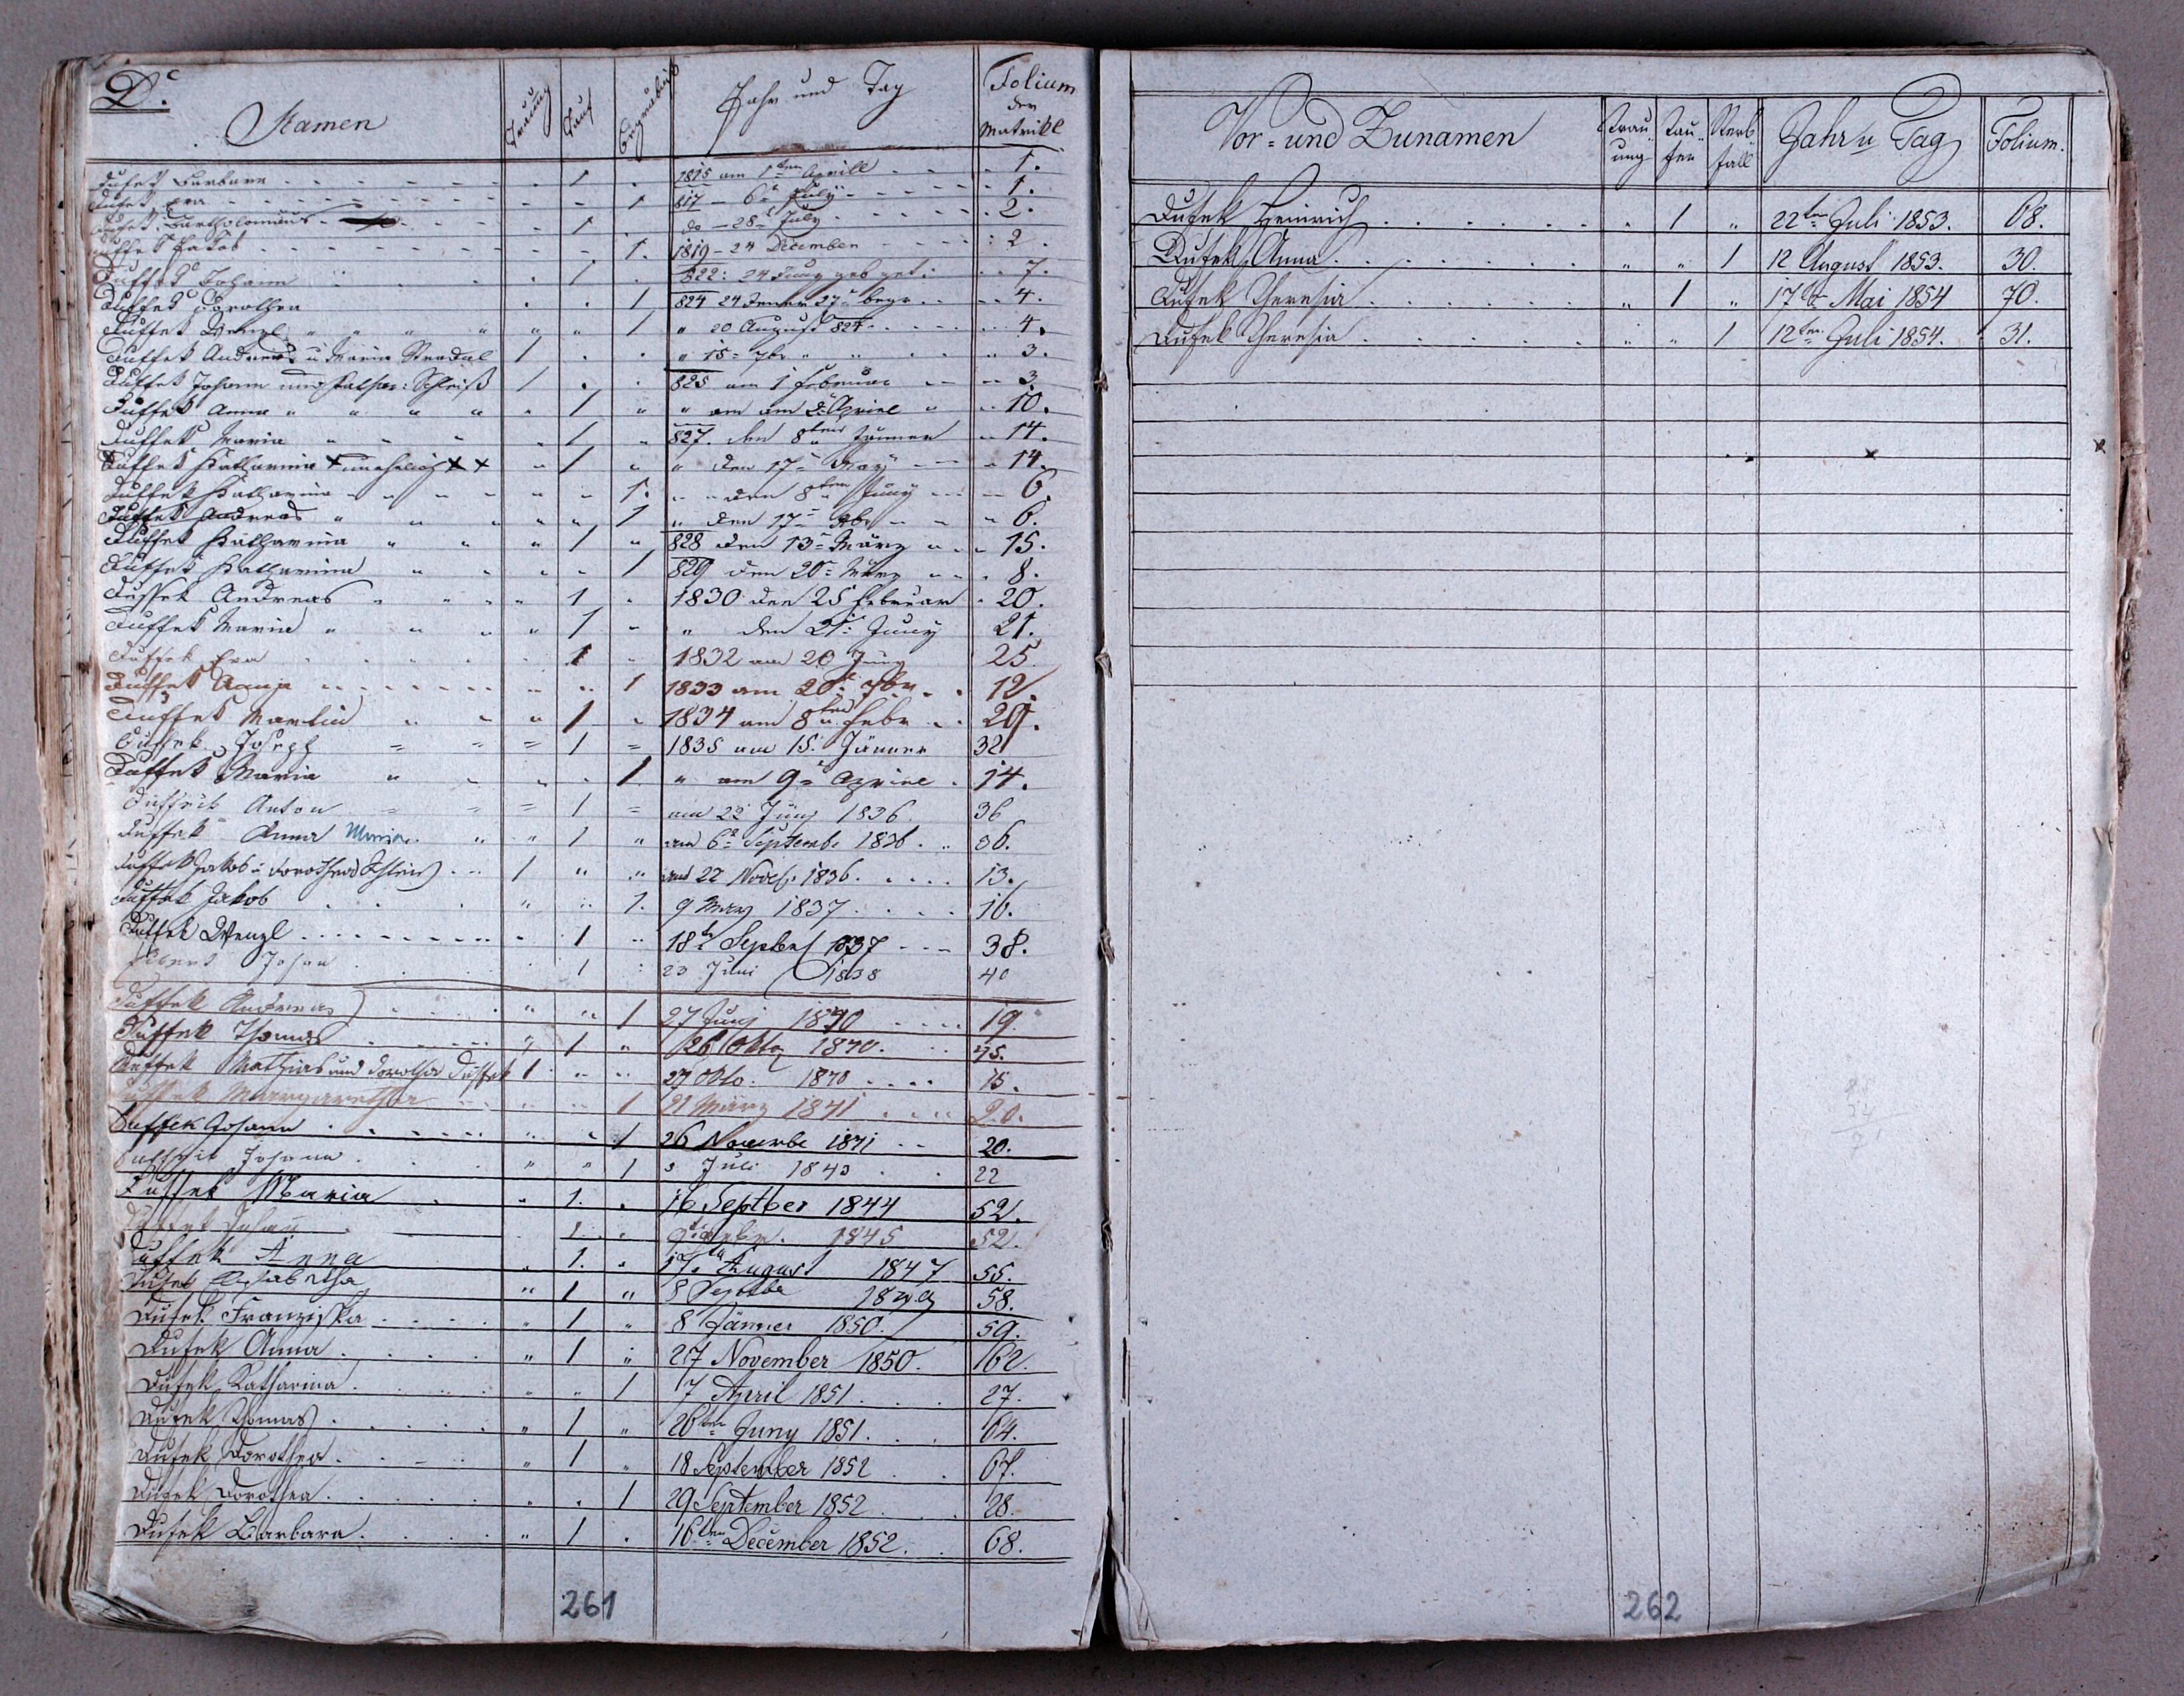 D.
Namen Trauung Tauf Begräbniß Jahr und Tag Folium der Matrikl
Dufek Barbara 1 1815 am 1ten Aprill 1.
Dufek Eva 1 817 - 6t July 1.
Dufek Bartholomäus 1 do - 28t July 2.
Duffek Jakob 1. 1819 - 24 December 2.
Duffek Johann 1 822: 24 Juny geb get. 7.
Duffek Dorothea 1 824 24 Jener 27t begr. 4.
Duffek Wenzl " " " " " " 1 " 20 August 824 4.
Duffek Andreas u Maria 1 " 15 7br " " 3.
Duffek Johann und Kathar: 1 825 am 1 Februar 3.
Duffek Anna " " " " 1 " " am 2t Apriel " 10.
Duffek Maria " " " 1 " 827. den 8ten Jänner 14.
Duffek Katharina + unehelich + + 1 " " den 17t May 14.
Duffek Katharina 1. " den 8ten Juny 6.
Duffek Andreas " " " " 1 " den 17t 6.
Duffek Katharina " " " 1 " 828 den 13t März 15.
Duffek Katharina " " " 1 829 den 20t März 8.
Duffek Andreas " " " 1 1830 den 25 Februar 20.
Duffek Maria " " " " 1 " " den 21t Juny 21.
Duffek Eva 1 1832 am 20 Juny 25
Duffek 1 1833 am 20t 7br. 12.
Duffek Martin " " " 1 " 1834 am 8ten Febr 29.
Duffek Joseph = = = 1 = 1835 am 15. Jänner 32
Duffek Maria " 1 " am 9t Apriel 14.
Duffek Anton = = = 1 = am 22 Juny 1836. 36
Duffek Anna Maria " " 1 " am 6t Septembr 1836. 36.
Duffek Jakob u Dorothea 1 " " am 22 1836. 13.
Duffek Jakob " " 1. 9 May 1837 16.
Duffek Wenzl 1 18t Septbr 1837 38.
Johan 1 23 Juni 1838 40
Duffek Andreas " " 1 27 Juny 1840 19.
Duffek Thomas " 1 " 26 Okto 1840. 45.
Duffek Mathias und Dorothea Duffek 1 " " 27 Okto. 1840 15.
Duffek Margaretha " " 1 21 März 1841 20.
Duffek Johann " " 1 26 Novembr 1841 20.
Johann " " 1 3 Juli 1843 22
Duffek Maria " 1. . 16 Septber 1844 52.
Duffek Johann 1. 1845 52.
Duffek Anna " 1. 17t August 1847 55.
Dufek Elisabetha " 1 " 8 Septbr 1849 58.
Dufek Franziska " 1 " 8 Jänner 1850. 59.
Dufek Anna " 1 " 27 November 1850. 62.
Dufek Katharina " " 1 7 April 1851 27.
Dufek Thomas " 1 " 26ten Juny 1851. 64.
Dufek Dorothea " 1 " 18 September 1852 67.
Dufek Dorothea " . 1 29 September 1852 28.
Dufek Barbara " 1 . 16ten December 1852. 68.
261
Vor- und Zunamen Trauung Taufen Sterbfall Jahr u Tag Folium.
Dufek Heinrich " 1 " 22ten Juli 1853. 68.
Dufek Anna " " 1 12 August 1853. 30.
Dufek Theresia " 1 " 17t Mai 1854 70.
Dufek Theresia " " 1 12ten Juli 1854. 31.
262